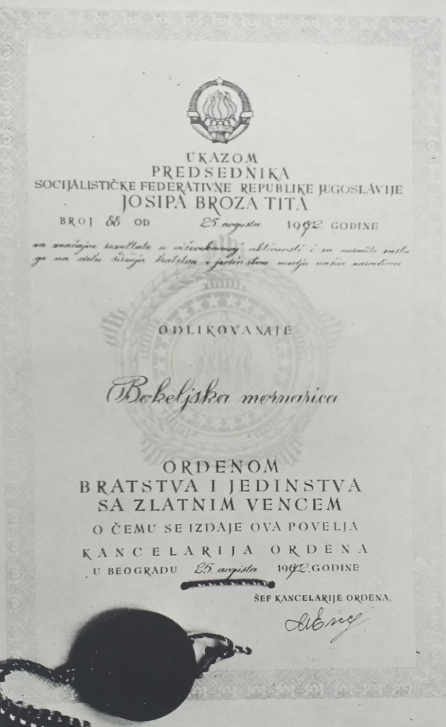 UKAZOM
PREDSEDNIKA
SOCIJALISTIČKE FEDERATIVNE REPUBLIKE JUGOSLAVIJE
JOSIPA BROZA TITA
BROJ 88 OD 25 avgusta 1972 GODINE
za značajne rezultate u višestrukoj aktivnosti i za naročite zaslu-
ge na delu širenja bratstva i jedinstva medju našim narodima
ODLIKOVANA JE
Bokeljska mornarica
ORDENOM
BRATSTVA I JEDINSTVA
SA ZLATNIM VENCEM
O ČEMU SE IZDAJE OVA POVELJA
KANCELARIJA ORDENA
U BEOGRADU 25 avgusta 1972 GODINE
ŠEF KANCELARIJE ORDENA,